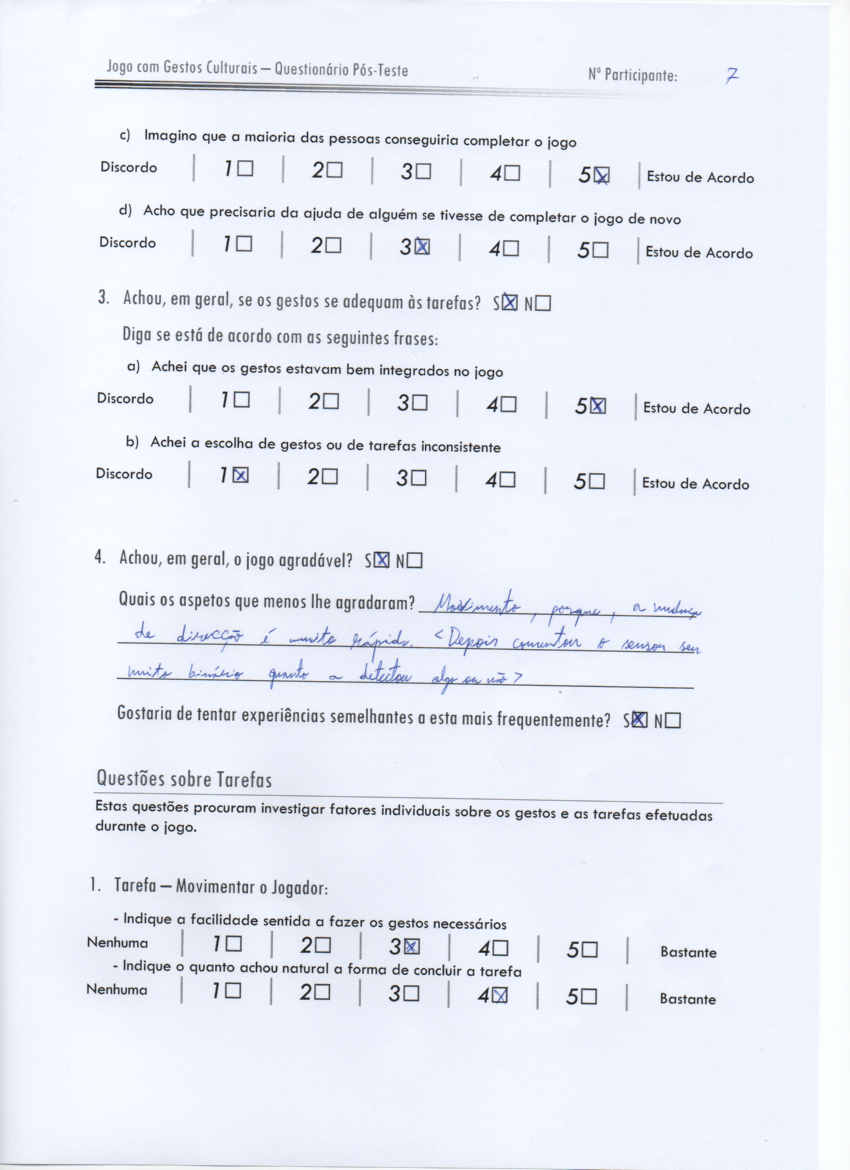 Jogo com Gestos Culturais – Questionário Pós-Teste Nº Participante: 7
c) Imagino que a maioria das pessoas conseguiria completar o jogo
Discordo | 1☐ | 2☐ | 3☐ | 4☐ | 5☒ | Estou de Acordo
d) Acho que precisaria da ajuda de alguém se tivesse de completar o jogo de novo
Discordo | 1☐ | 2☐ | 3☒ | 4☐ | 5☐ | Estou de Acordo
3. Achou, em geral, se os gestos se adequam às tarefas? S☒ N☐
Diga se está de acordo com as seguintes frases:
a) Achei que os gestos estavam bem integrados no jogo
Discordo | 1☐ | 2☐ | 3☐ | 4☐ | 5☒ | Estou de Acordo
b) Achei a escolha de gestos ou de tarefas inconsistente
Discordo | 1☒ | 2☐ | 3☐ | 4☐ | 5☐ | Estou de Acordo
4. Achou, em geral, o jogo agradável? S☒ N☐
Quais os aspetos que menos lhe agradaram? Movimento, porque, a mudança
de direcção é muito rápida. <Depois comentou o sensor ser
muito binário quanto a detectou algo ou não>
Gostaria de tentar experiências semelhantes a esta mais frequentemente? S☒ N☐
Questões sobre Tarefas
Estas questões procuram investigar fatores individuais sobre os gestos e as tarefas efetuadas
durante o jogo.
1. Tarefa – Movimentar o Jogador:
- Indique a facilidade sentida a fazer os gestos necessários
Nenhuma | 1☐ | 2☐ | 3☒ | 4☐ | 5☐ | Bastante
- Indique o quanto achou natural a forma de concluir a tarefa
Nenhuma | 1☐ | 2☐ | 3☐ | 4☒ | 5☐ | Bastante